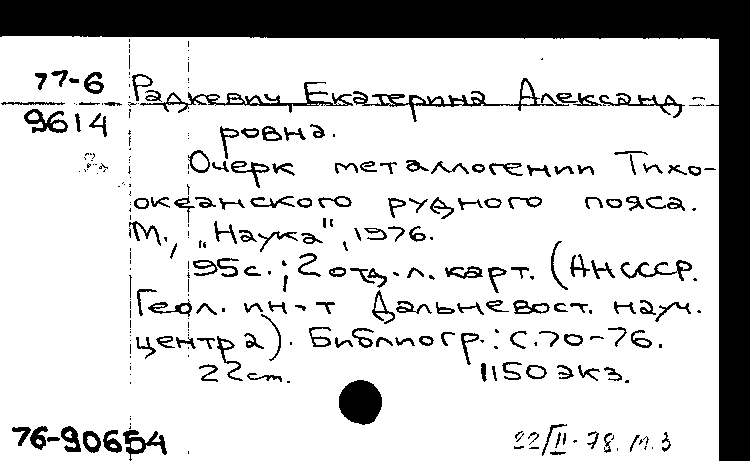 77-6 Радкевич, Екатерина Александ-
9614 ровна.
Очерк металлогении Тихо-
океанского рудного пояса.
М., „Наука", 1976.
95с.; 2 отд. л. карт. (АН СССР.
Геол. ин-т Дальневост. науч.
центра). Библиогр.: с. 70-76.
22 cm. 1150 экз.
76-90654 22/II-78.